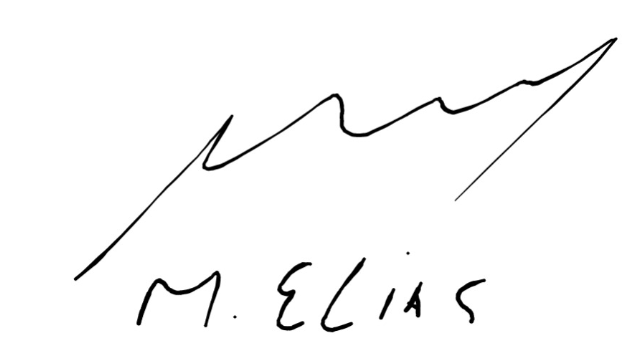 M. ELiAS